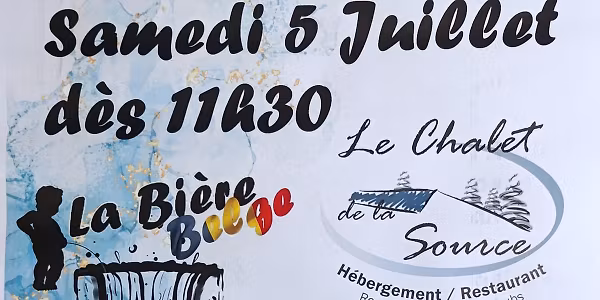 Samedi 5 Juillet
dès 11h30
La Bière
Belge
Le Chalet
de la
Source
Hébergement / Restaurant